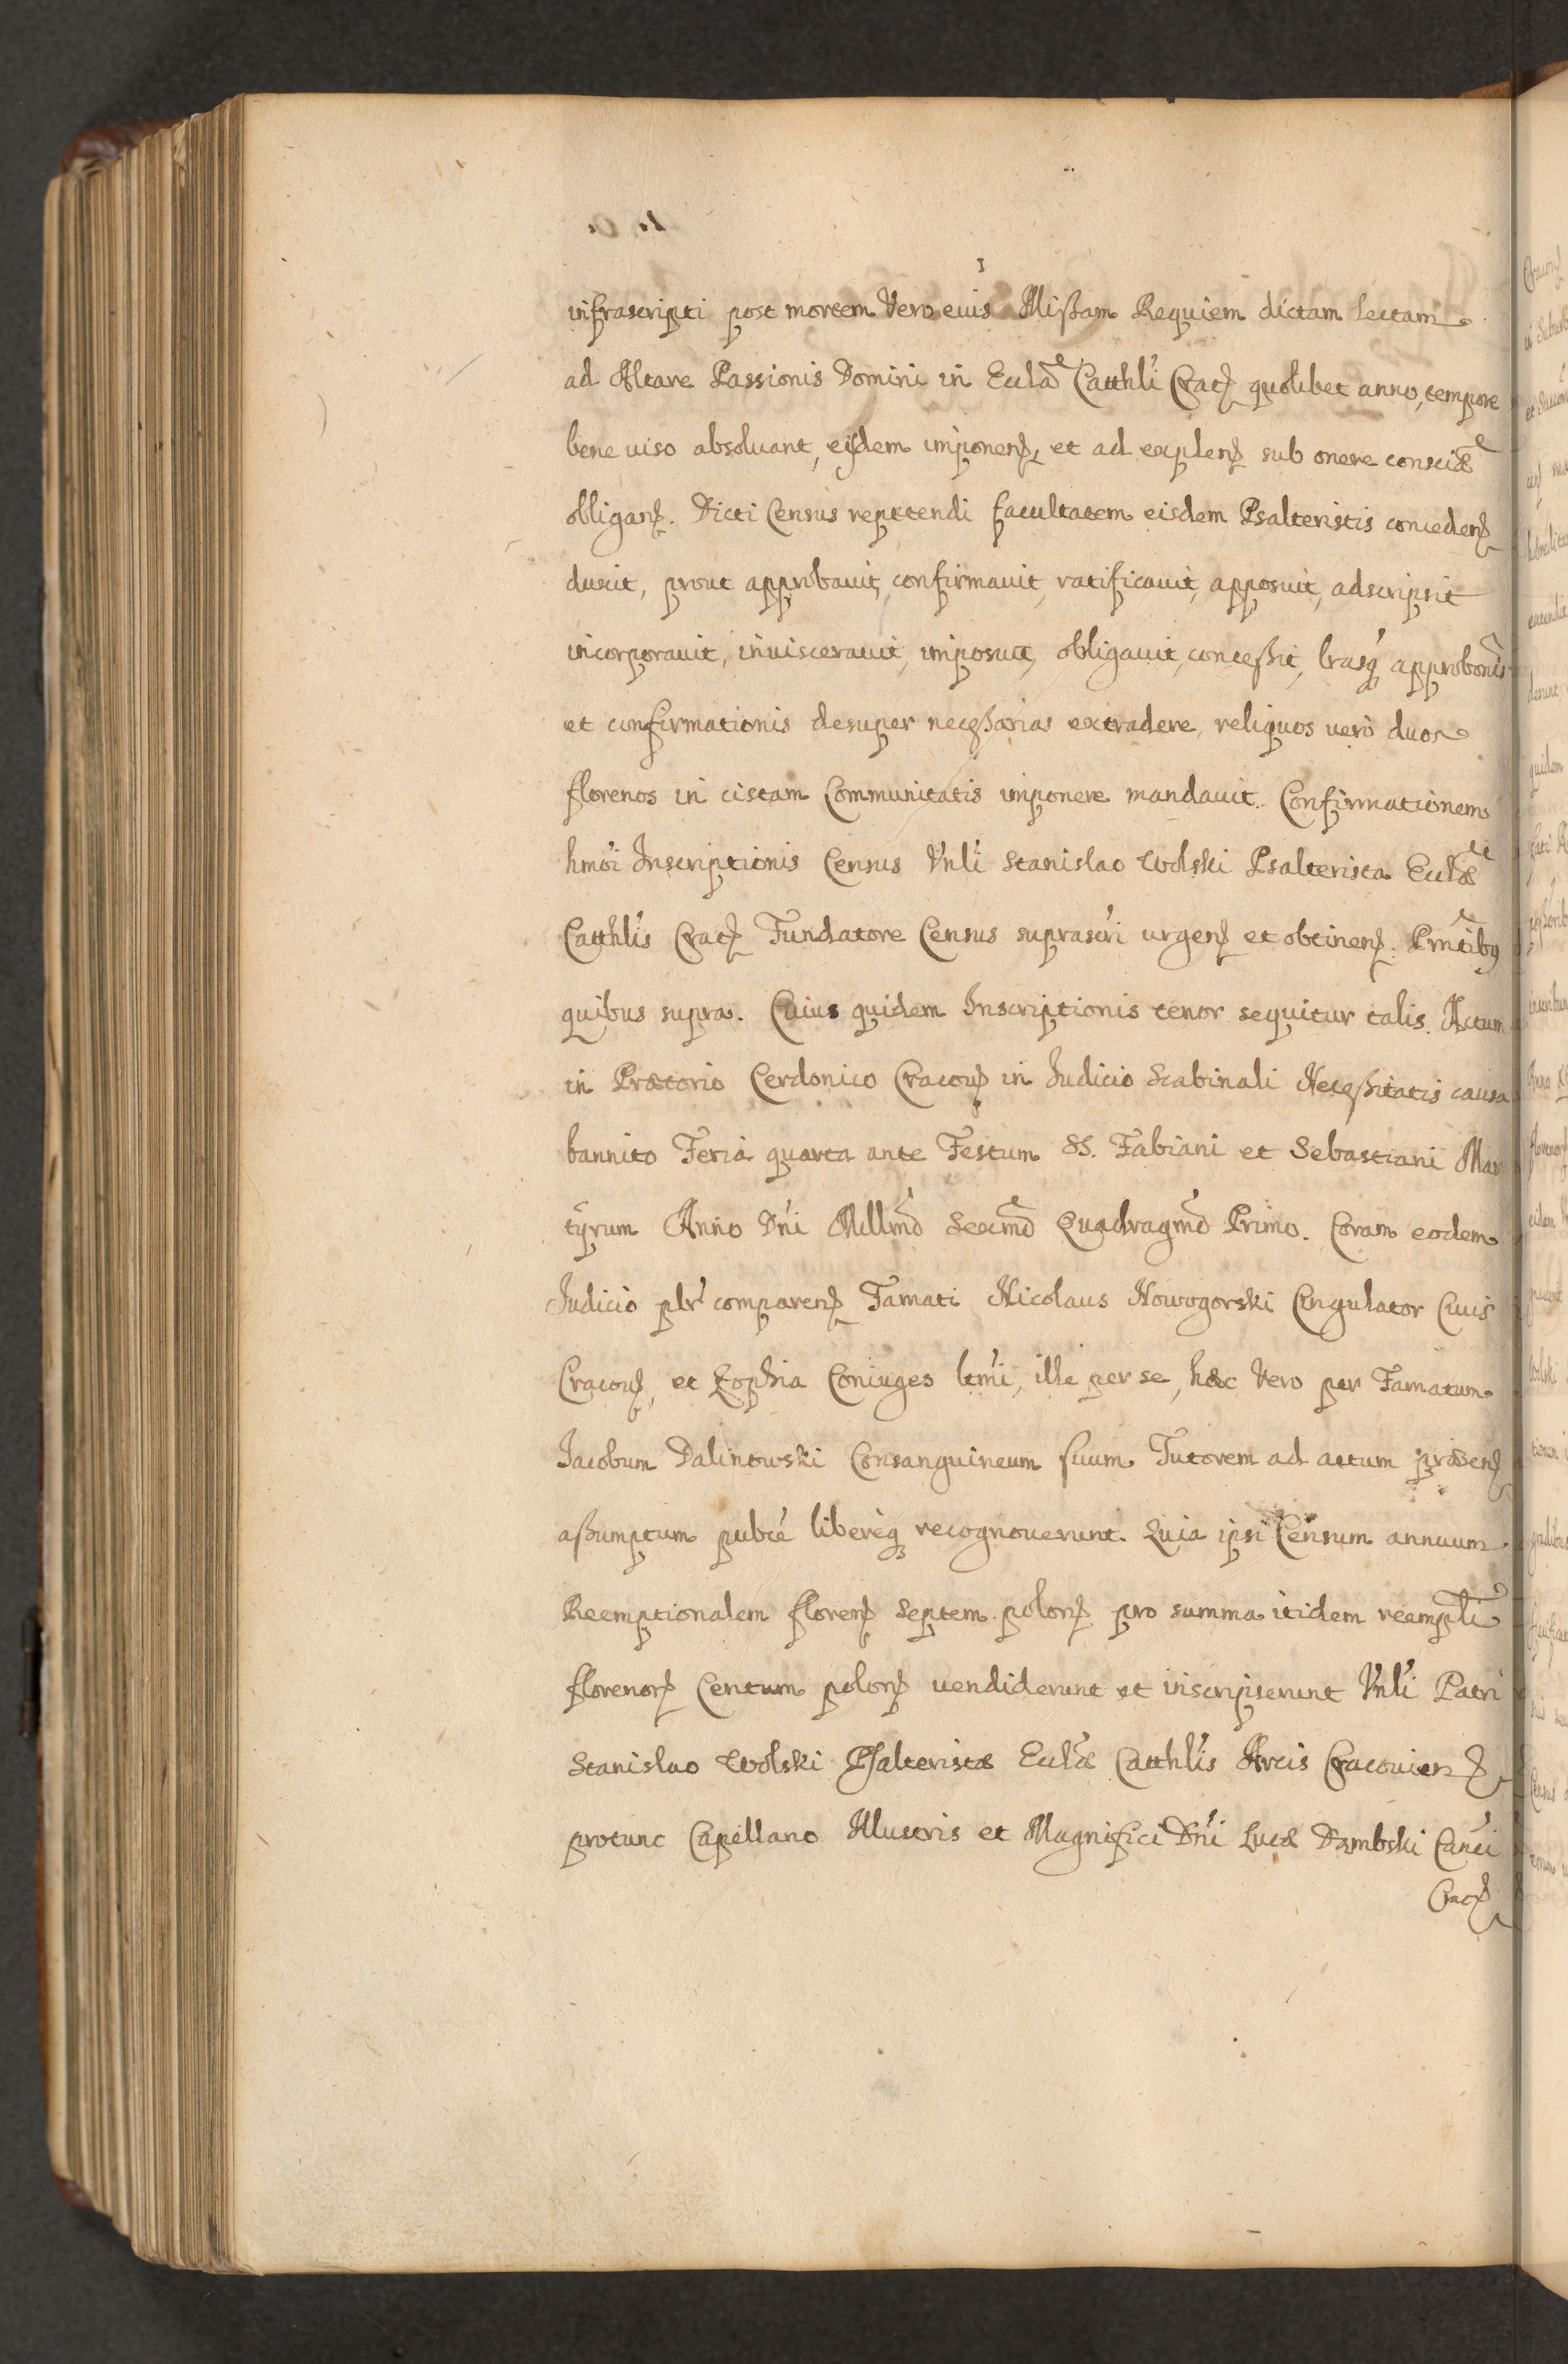 infrascripti post mortem Vero eius Missam Requiem dictam lectam
ad Altare Passionis Domini in Eccła Catthli Crac: quolibet anno, tempore
bene uiso absoluant, eisdem imponen: et ad explen: sub onere consciæ
obligan: Dicti Census repetendi facultatem eisdem Psalteristis conceden:
duxit, prout approbauit, confirmauit, ratificauit, apposuit, adscripsit
incorporauit, inuiscerauit, imposuit, obligauit, concessit, lrasq approbonis
et confirmationis desuper necessarias extradere, reliquos uerò duos
florenos in cistam Communitatis imponere mandauit. Confirmationem
hmoi Inscriptionis Census Vnli Stanislao Wolski Psalterista Eccłæ
Catthlis Crac: Fundatore Census suprascri urgen: et obtinen: Pnntibq
quibus supra. Cuius quidem Inscriptionis tenor sequitur talis. Actum
in Prætorio Cerdonico Cracou: in Iudicio Scabinali Necessitatis causa
bannito Feria quarta ante Festum SS. Fabiani et Sebastiani Mar
tyrum Anno Dni Millmo Sexmo Quadragmo Primo. Coram eodem
Iudicio plr comparen: Famati Nicolaus Nowogorski Cingulator Ciuis
Cracou:, et Zophia Coniuges ltmi, ille per se, hæc Vero per Famatum
Jacobum Dalintowski Consanguineum suum Tutorem ad actum præsen:
assumptum pubce liberèq recognouerunt. Quia ipsi Censum annuum
Reemptionalem floren: Septem polon: pro summa itidem reempli
florenor: Centum polon: uendiderunt et inscripserunt Vnli Patri
Stanislao Wolski Psalteristæ Eccłæ Catthlis Arcis Cracouien:
protunc Capellano Illustris et Magnifici Dni Lucæ Dambski Canci
Crac: